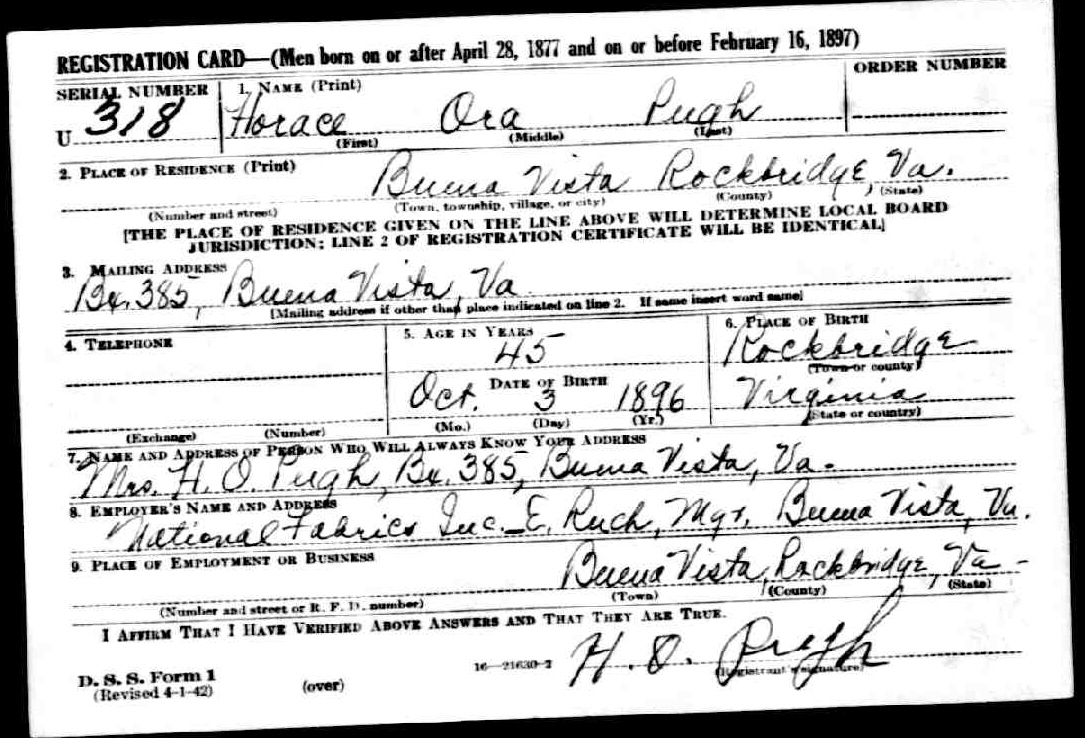 REGISTRATION CARD—(Men born on or after April 28, 1877 and on or before February 16, 1897)
SERIAL NUMBER 1. NAME (Print) ORDER NUMBER
U 318 Horace Ora Pugh
(First) (Middle) (Last)
2. PLACE OF RESIDENCE (Print)
Buena Vista Rockbridge, Va.
(Number and street) (Town, township, village, or city) (County) (State)
[THE PLACE OF RESIDENCE GIVEN ON THE LINE ABOVE WILL DETERMINE LOCAL BOARD
JURISDICTION; LINE 2 OF REGISTRATION CERTIFICATE WILL BE IDENTICAL]
3. MAILING ADDRESS
Bx. 385, Buena Vista, Va
[Mailing address if other than place indicated on line 2. If same insert word same]
4. TELEPHONE 5. AGE IN YEARS 6. PLACE OF BIRTH
45 Rockbridge
(Town or county)
DATE OF BIRTH
Oct. 3 1896 Virginia
(Exchange) (Number) (Mo.) (Day) (Yr.) (State or country)
7. NAME AND ADDRESS OF PERSON WHO WILL ALWAYS KNOW YOUR ADDRESS
Mrs. H. O. Pugh, Bx. 385, Buena Vista, Va.
8. EMPLOYER'S NAME AND ADDRESS
National Fabrics Inc. E. Ruch, Mgr. Buena Vista, Va.
9. PLACE OF EMPLOYMENT OR BUSINESS
Buena Vista, Rockbridge, Va
(Number and street or R. F. D. number) (Town) (County) (State)
I AFFIRM THAT I HAVE VERIFIED ABOVE ANSWERS AND THAT THEY ARE TRUE.
H. O. Pugh
D. S. S. Form 1 16—21630-2 (Registrant's signature)
(Revised 4-1-42) (over)